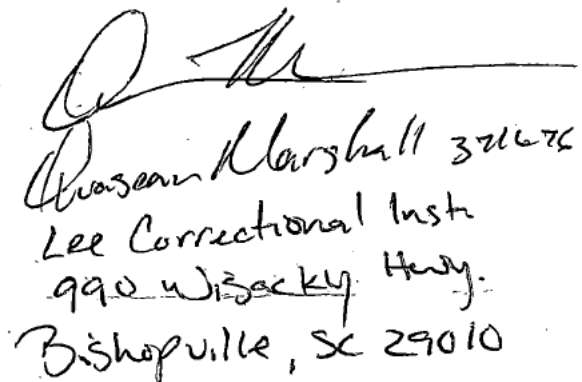 Quasean Marshall 371676
Lee Correctional Inst.
990 Wisacky Hwy.
Bishopville, SC 29010